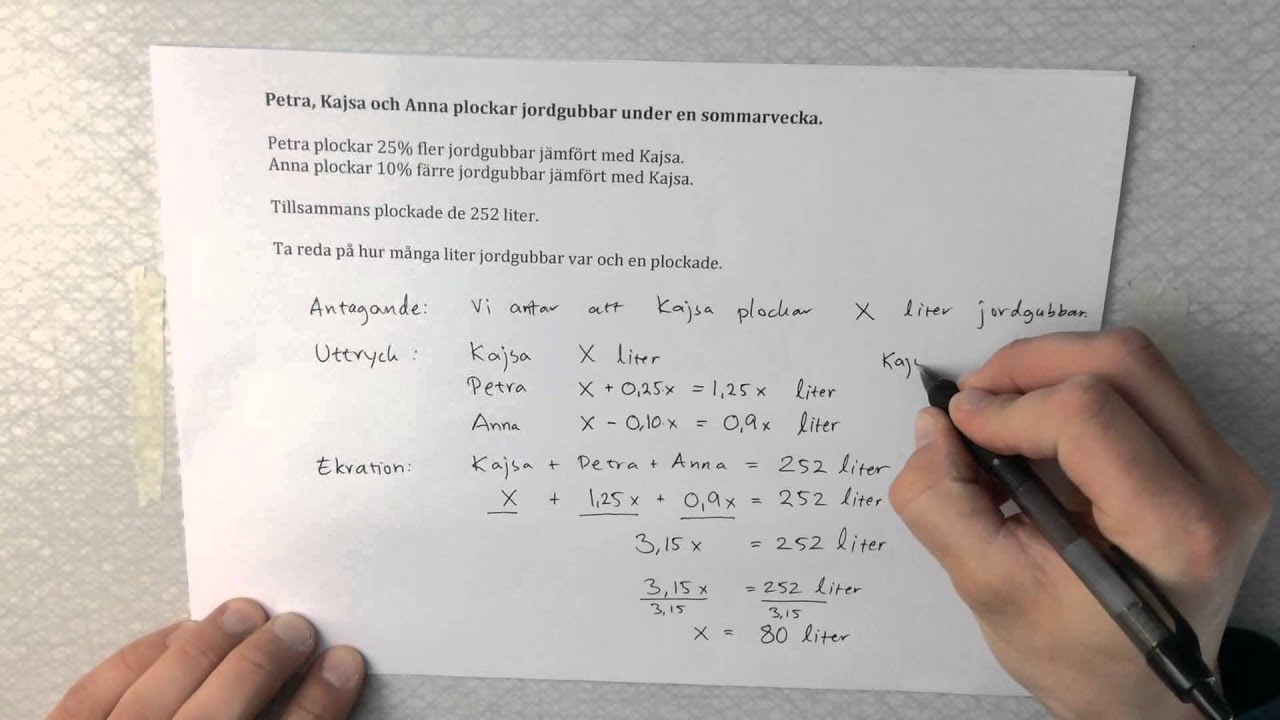 Petra, Kajsa och Anna plockar jordgubbar under en sommarvecka.
Petra plockar 25% fler jordgubbar jämfört med Kajsa.
Anna plockar 10% färre jordgubbar jämfört med Kajsa.
Tillsammans plockade de 252 liter.
Ta reda på hur många liter jordgubbar var och en plockade.
Antagande: Vi antar att Kajsa plockar X liter jordgubbar.
Uttryck: Kajsa X liter
Kajs
Petra X + 0,25x = 1,25x liter
Anna X - 0,10·x = 0,9x liter
Ekvation: Kajsa + Petra + Anna = 252 liter
X + 1,25x + 0,9x = 252 liter
3,15x = 252 liter
3,15x = 252 liter
3,15 3,15
x = 80 liter